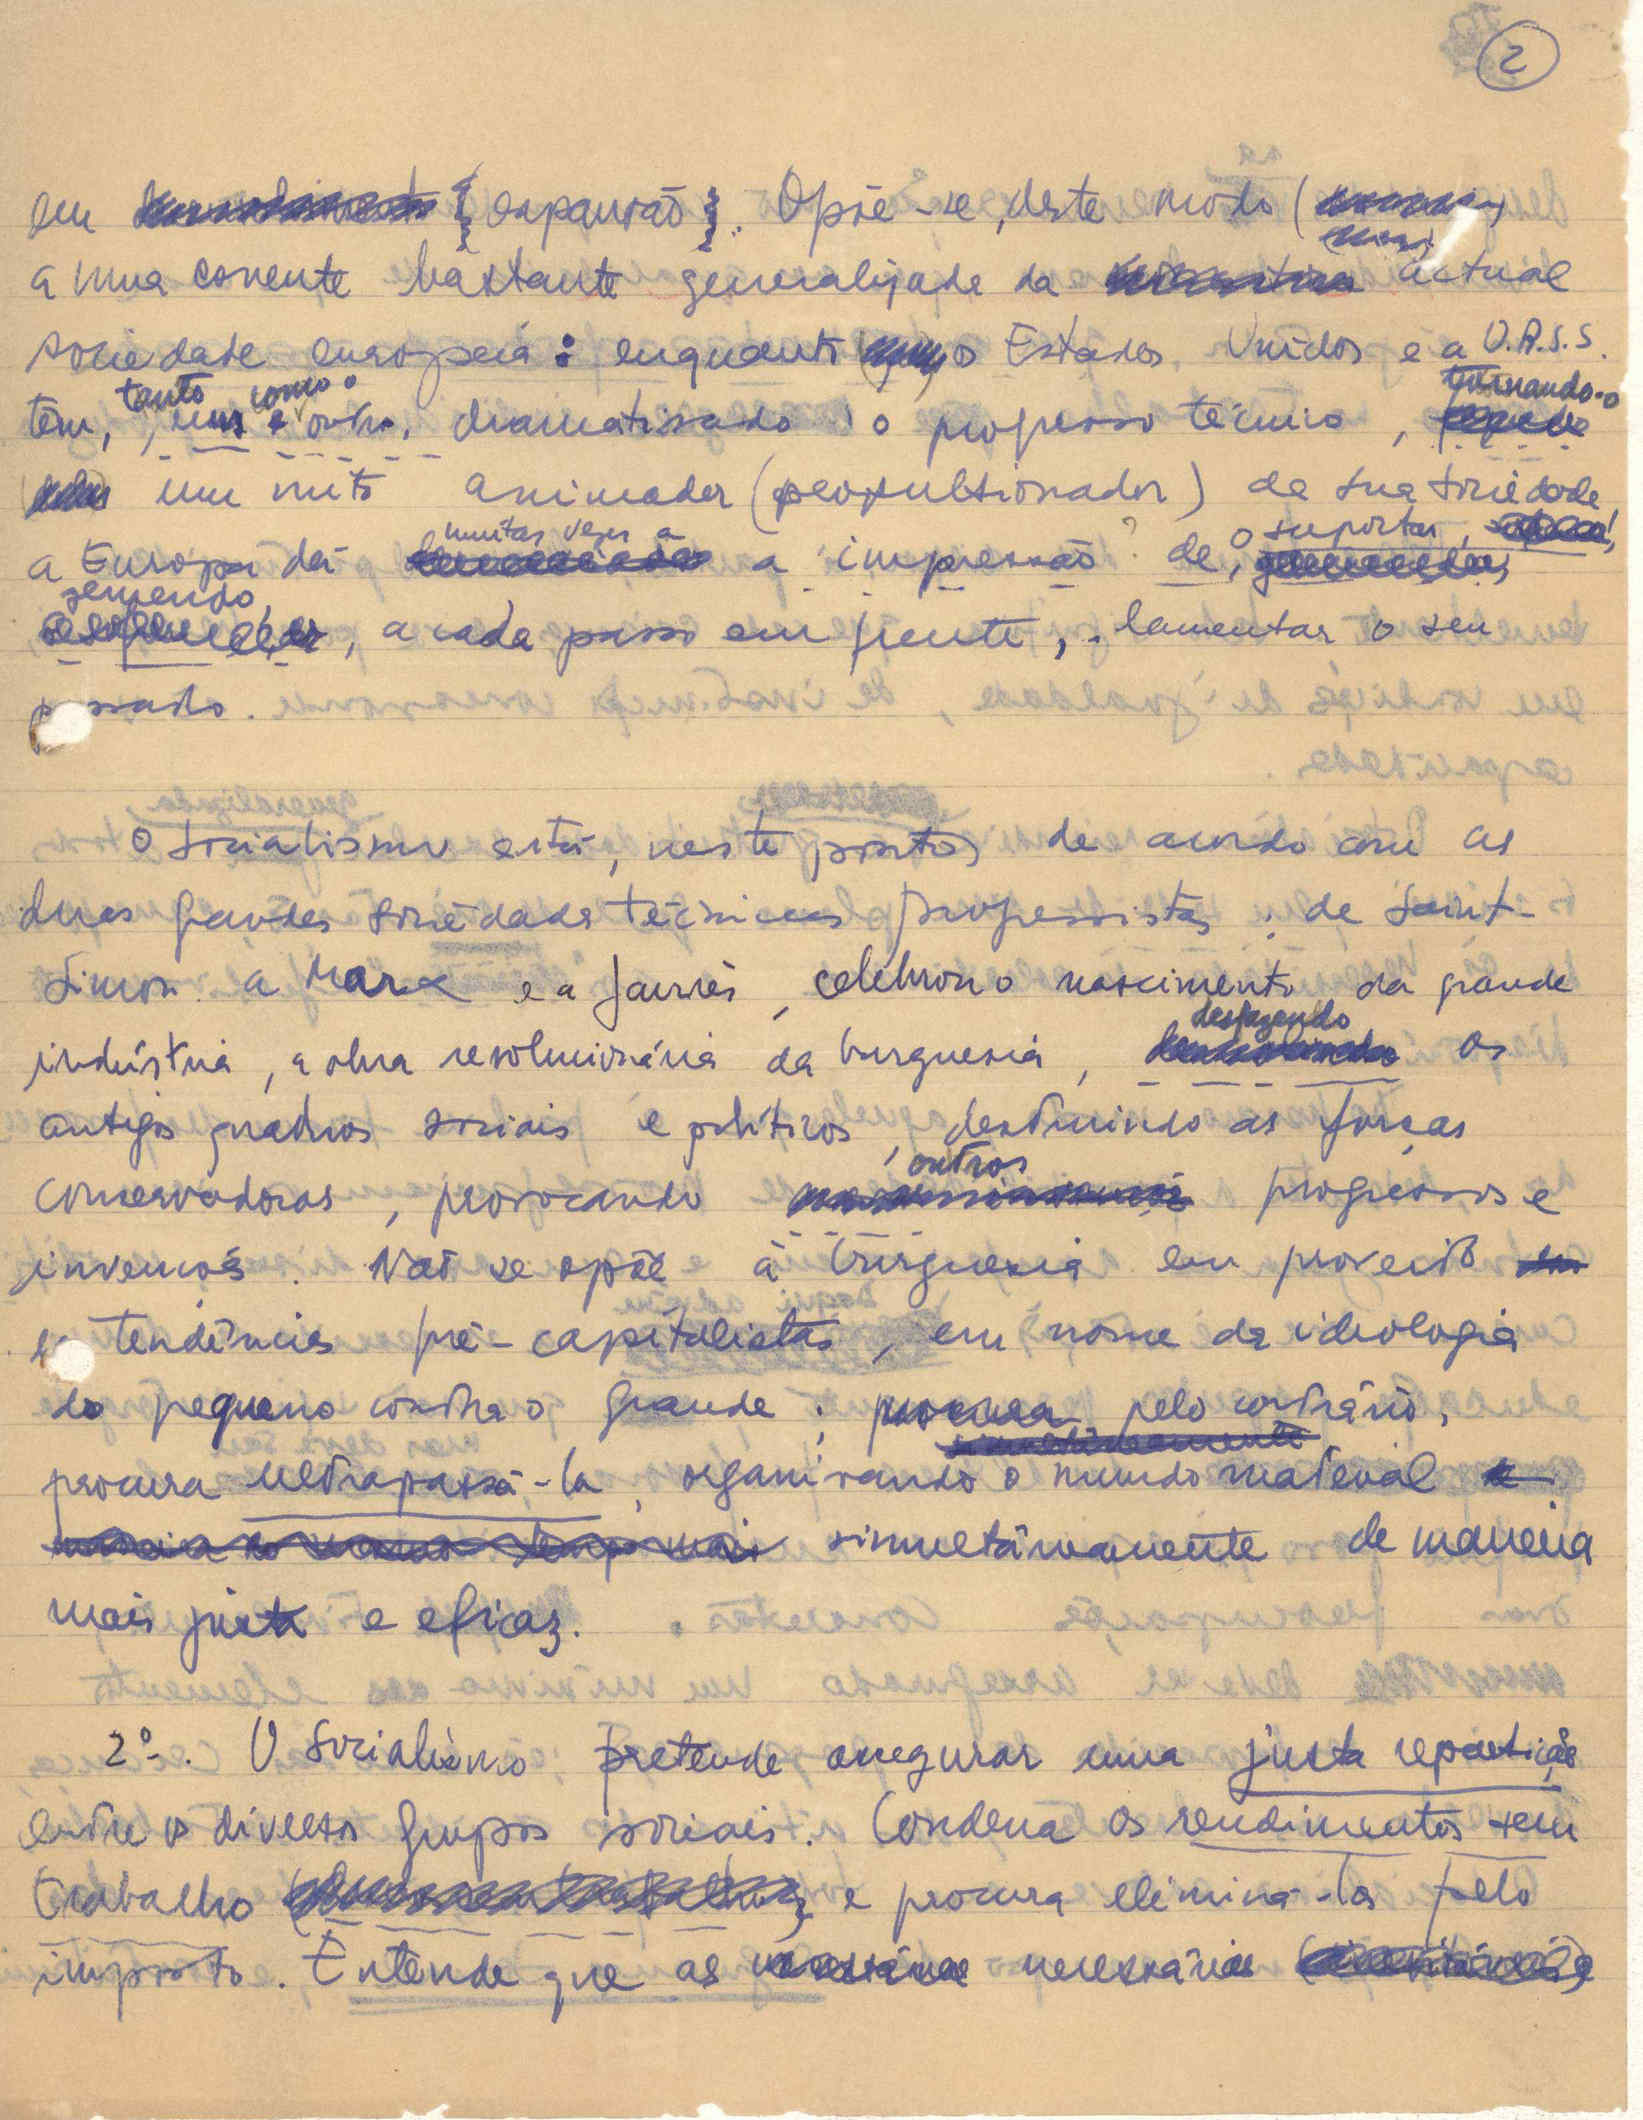 2
em {expansão}. Opõe-se, deste modo
a uma corrente bastante generalizada da actual
sociedade europeia: enquanto os Estados Unidos e a U.R.S.S.
tornando-o
tanto como o
têm, um e outro, dramatizado o progresso técnico,
um mito animador (propulsionador) da sua sociedade
muitas vezes a
o suportar,
a Europa dá a impressão de,
gemendo,
a cada passo em frente, lamentar o seu
passado.
O socialismo está, neste ponto, de acordo com as
duas grandes sociedades técnicas progressistas; de Saint-
Simon a Marx e a Jaurès, celebrou o nascimento da grande
desfazendo
indústria, a obra revolucionária da burguesia, os
antigos quadros sociais e políticos, destruindo as forças
outros
conservadoras, provocando progressos e
invenções. Não se opõe à burguesia em proveito
tendências pré-capitalistas, em nome da ideologia
do pequeno contra o grande; procura, pelo contrário,
simultâneamente
procura ultrapassá-la, organizando o mundo material e
maneira ao mesmo tempo mais simultâneamente de maneira
mais justa e eficaz.
2º-. O socialismo pretende assegurar uma justa repartição
entre os diversos grupos sociais. Condena os rendimentos sem
trabalho e procura eliminá-los pelo
imposto. Entende que as necessárias